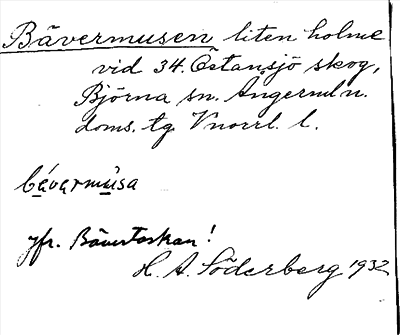 Bävermusen liten holme
vid 34. Östansjö skog,
Björna sn. Ångerml n.
doms. tg Vnorrl. l.
bávarmùsa
jfr. Bävertaskan!
H. A. Söderberg 1932